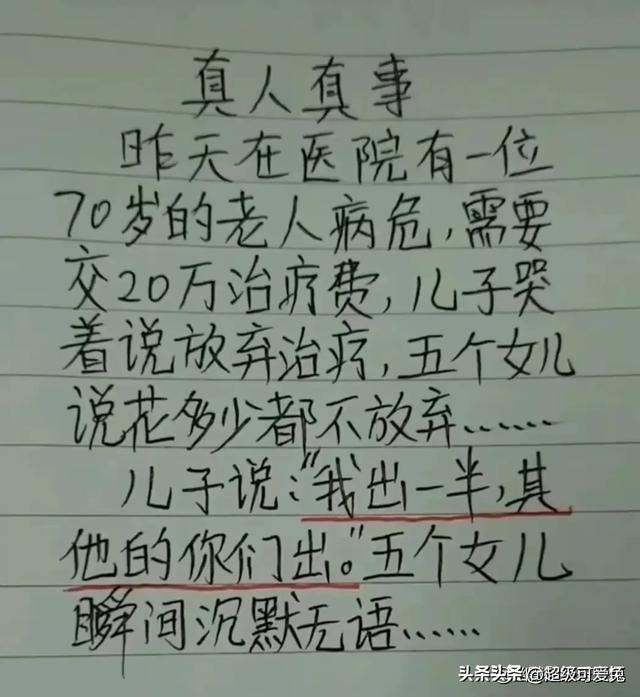 真人真事
昨天在医院有一位
70岁的老人病危,需要
交20万治疗费,儿子哭
着说放弃治疗,五个女儿
说花多少都不放弃……
儿子说:“我出一半,其
他的你们出。”五个女儿
瞬间沉默无语……
头条头条@超级可爱兔